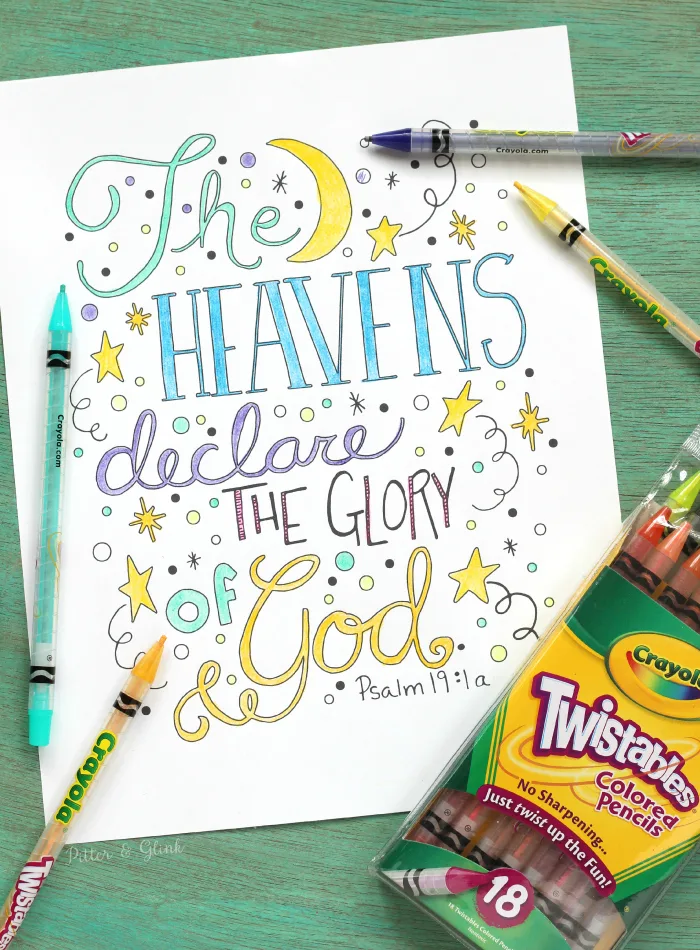 The
HEAVENS
declare
THE GLORY
of
God
Psalm 19:1a
Crayola.com
Crayola
Crayola.com
Crayola
Twistables
Pitter & Glink
Crayola
Twistables
Colored
Pencils
No Sharpening...
Just twist up the Fun!
18
18 Twistables Colored Pencils